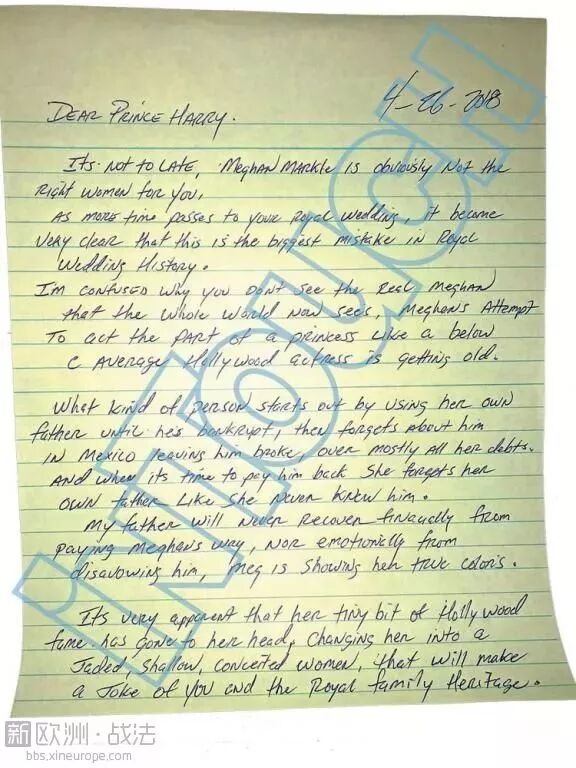 4-26-2018
DEAR PRINCE HARRY.
ITS NOT TO LATE, MEGHAN MARKLE IS OBVIOUSLY NOT THE
RIGHT WOMEN FOR YOU,
AS MORE TIME PASSES TO YOUR ROYAL WEDDING, IT BECAME
VERY CLEAR THAT THIS IS THE BIGGEST MISTAKE IN ROYAL
WEDDING HISTORY.
I'M CONFUSED WHY YOU DON'T SEE THE REAL MEGHAN
THAT THE WHOLE WORLD NOW SEES, MEGHAN'S ATTEMPT
TO ACT THE PART OF A PRINCESS LIKE A BELOW
C AVERAGE HOLLYWOOD ACTRESS IS GETTING OLD.
WHAT KIND OF PERSON STARTS OUT BY USING HER OWN
FATHER UNTIL HE'S BANKRUPT, THEN FORGETS ABOUT HIM
IN MEXICO LEAVING HIM BROKE, OVER MOSTLY ALL HER DEBTS.
AND WHEN ITS TIME TO PAY HIM BACK SHE FORGETS HER
OWN FATHER LIKE SHE NEVER KNEW HIM.
MY FATHER WILL NEVER RECOVER FINANCIALLY FROM
PAYING MEGHAN'S WAY, NOR EMOTIONALLY FROM
DISAVOWING HIM, MEG IS SHOWING HER TRUE COLORS.
ITS VERY APPARENT THAT HER TINY BIT OF HOLLYWOOD
FAME HAS GONE TO HER HEAD, CHANGING HER INTO A
JADED, SHALLOW, CONCEITED WOMEN, THAT WILL MAKE
A JOKE OF YOU AND THE ROYAL FAMILY HERITAGE.
InTouch
新欧洲·战法
bbs.xineurope.com